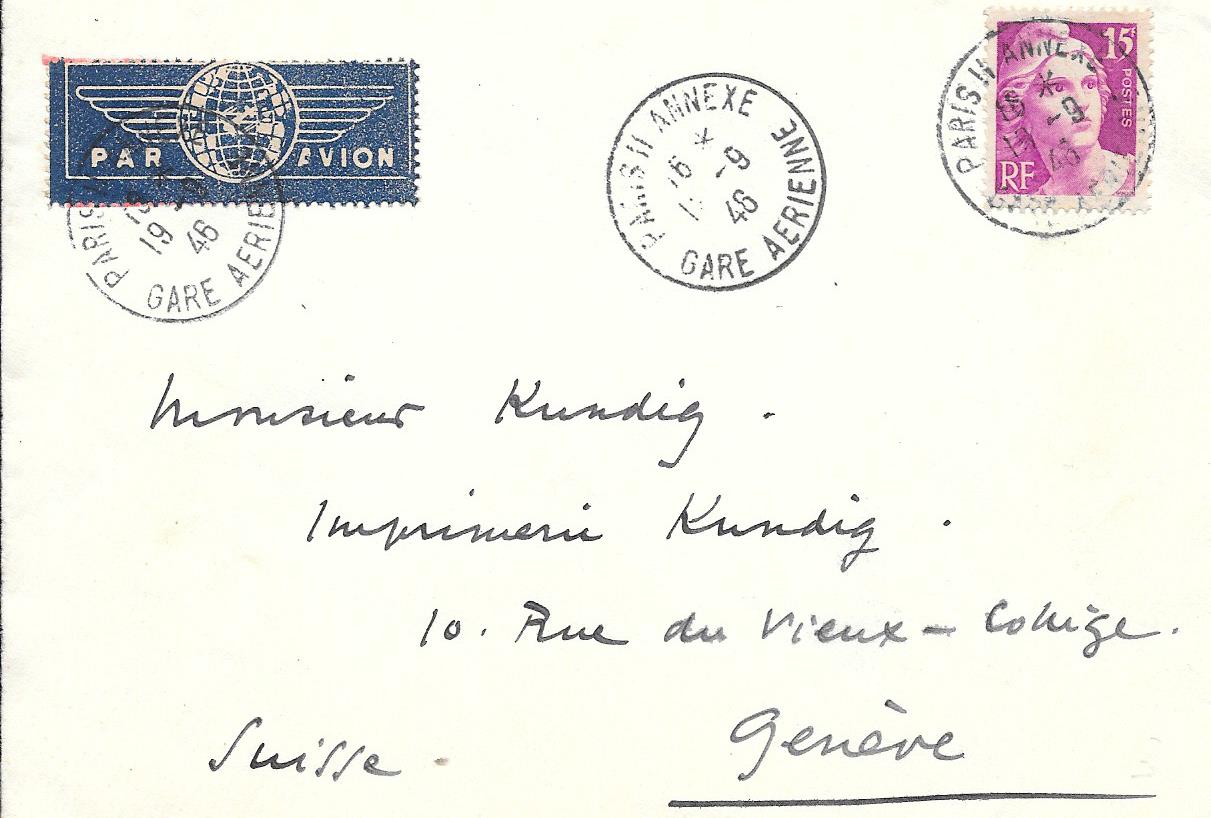 PAR AVION
PARIS GARE AERIENNE
19 46
PARIS II ANNEXE GARE AERIENNE
-9
46
15F
POSTES
RF
PARIS II ANNEXE
-9
Monsieur Kundig.
Imprimerie Kundig.
10. Rue du Vieux-Collège.
Genève
Suisse.